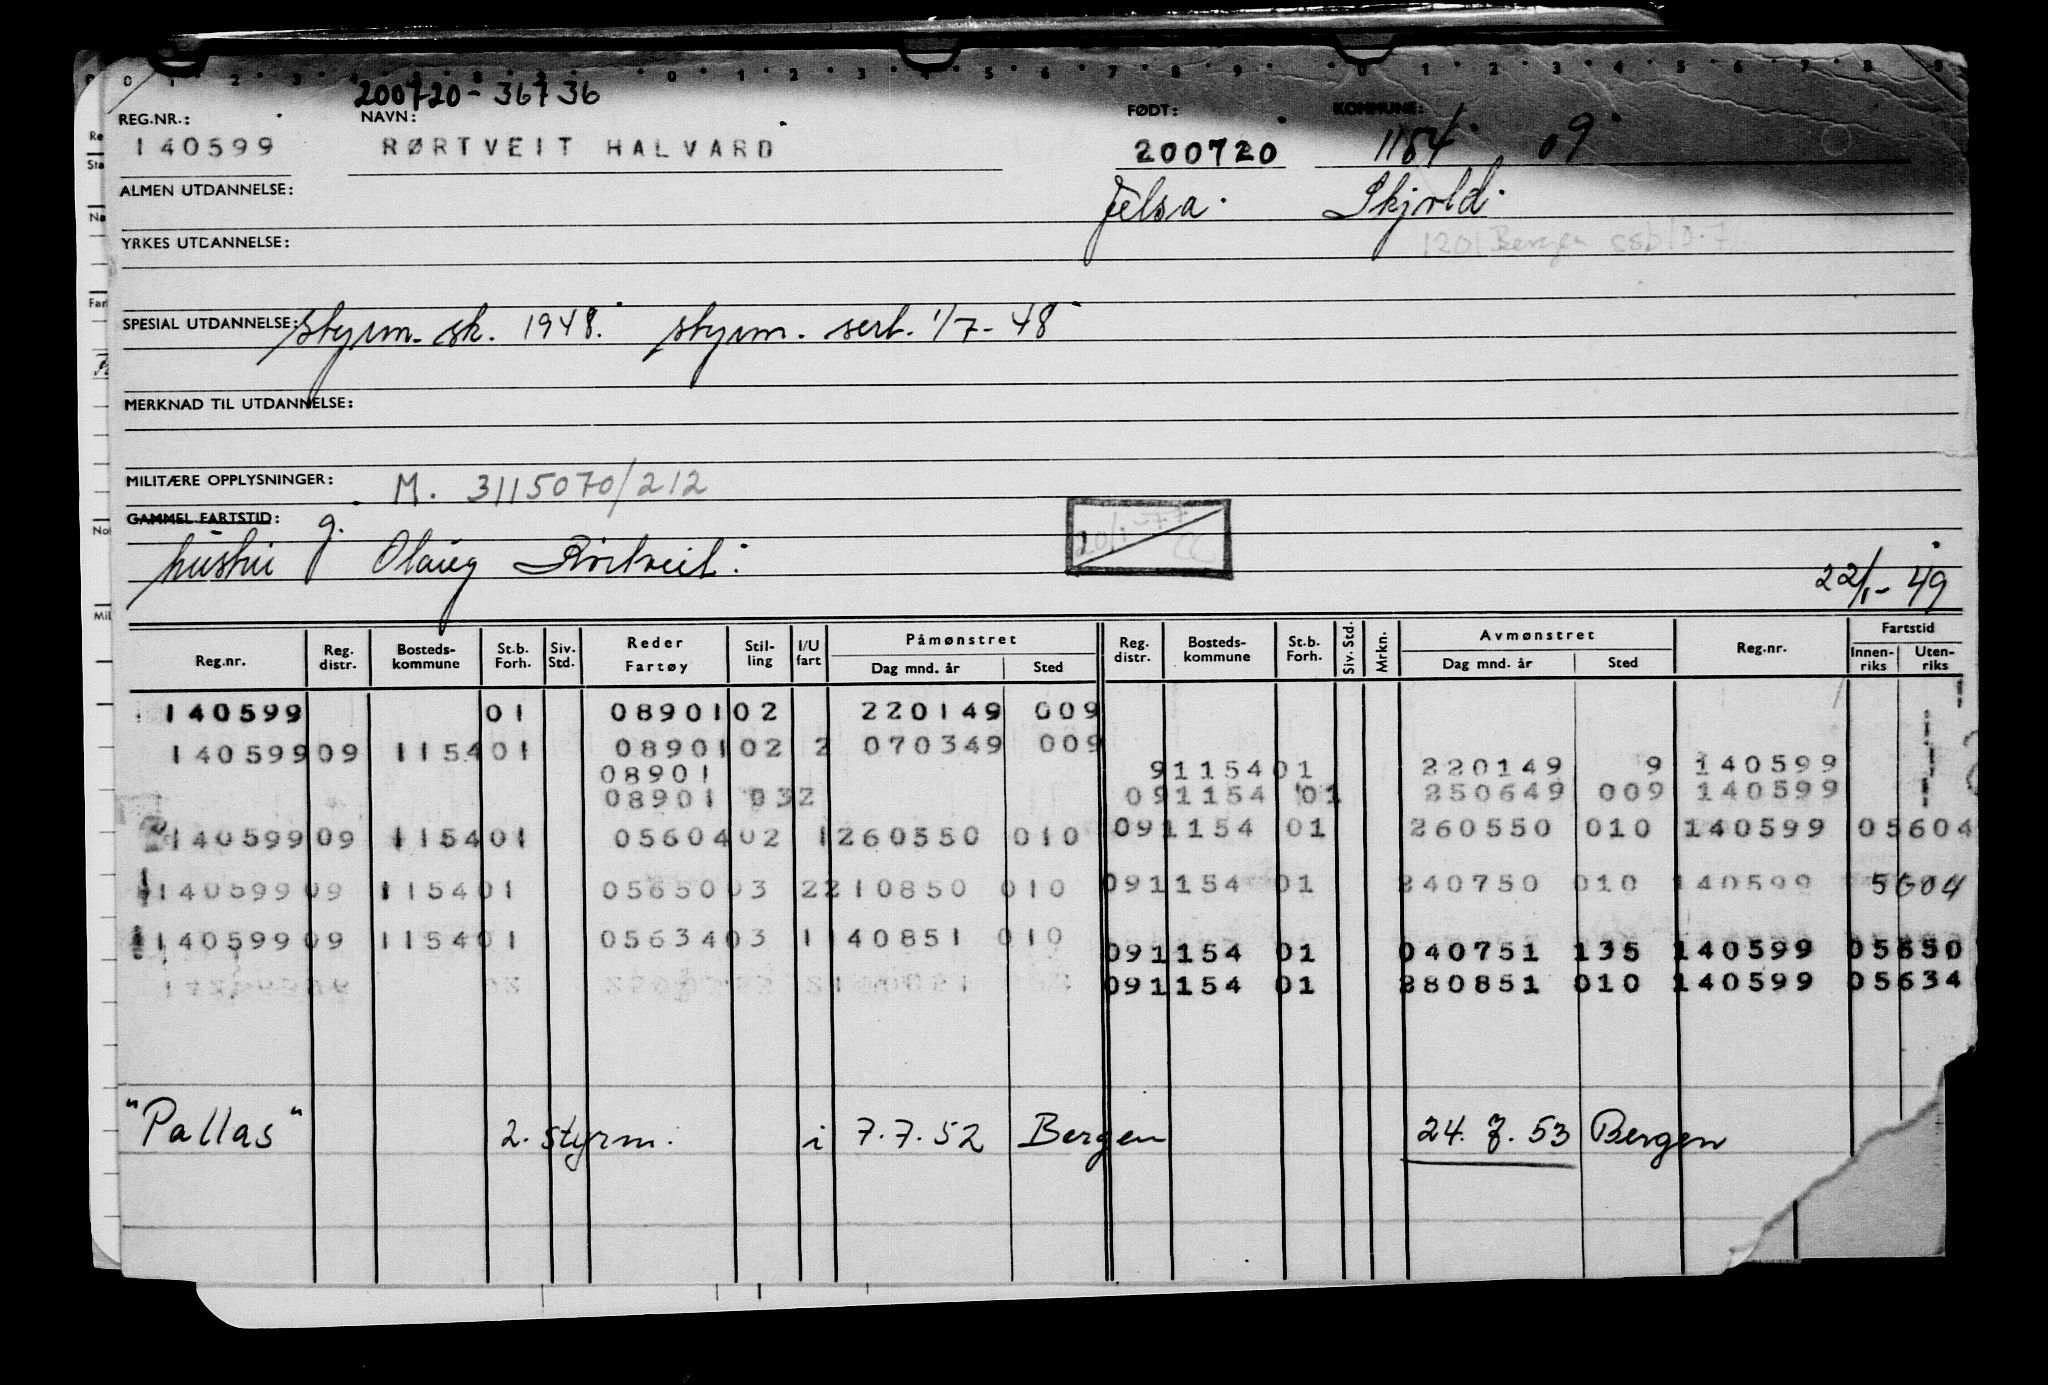 200720-36736
REG.NR.: NAVN: FØDT: KOMMUNE:
140599 RØRTVEIT HALVARD 200720 1154 09
ALMEN UTDANNELSE: Jelsa. Skjold.
YRKES UTDANNELSE: 1201 Bergen
SPESIAL UTDANNELSE: styrm. sk. 1948. styrm. sert. 1/7-48
MERKNAD TIL UTDANNELSE:
MILITÆRE OPPLYSNINGER: M. 3115070/212
GAMMEL FARTSTID: g.
hustru Olaug Rörtveit. 22/1-49
Reg.nr. Reg. distr. Bosteds-kommune St.b. Forh. Siv. Std. Reder Fartøy Stil-ling I/U fart Påmønstret Dag mnd. år Sted Reg. distr. Bosteds-kommune St.b. Forh. Siv. Std. Mrkn. Avmønstret Dag mnd. år Sted Reg.nr. Fartstid Innen-riks Uten-riks
140599 01 08901 02 220149 009
140599 09 1154 01 08901 02 2 070349 009
08901 9 1154 01 220149 9 140599
08901 032 09 1154 01 250649 009 140599
140599 09 1154 01 05604 02 1 260550 010 09 1154 01 260550 010 140599 05604
140599 09 1154 01 05650 03 2 210850 010 09 1154 01 240750 010 140599 5604
140599 09 1154 01 05634 03 1 140851 010 09 1154 01 040751 135 140599 05650
09 1154 01 280851 010 140599 05634
"Pallas" 2. styrm. i 7.7.52 Bergen 24.7.53 Bergen